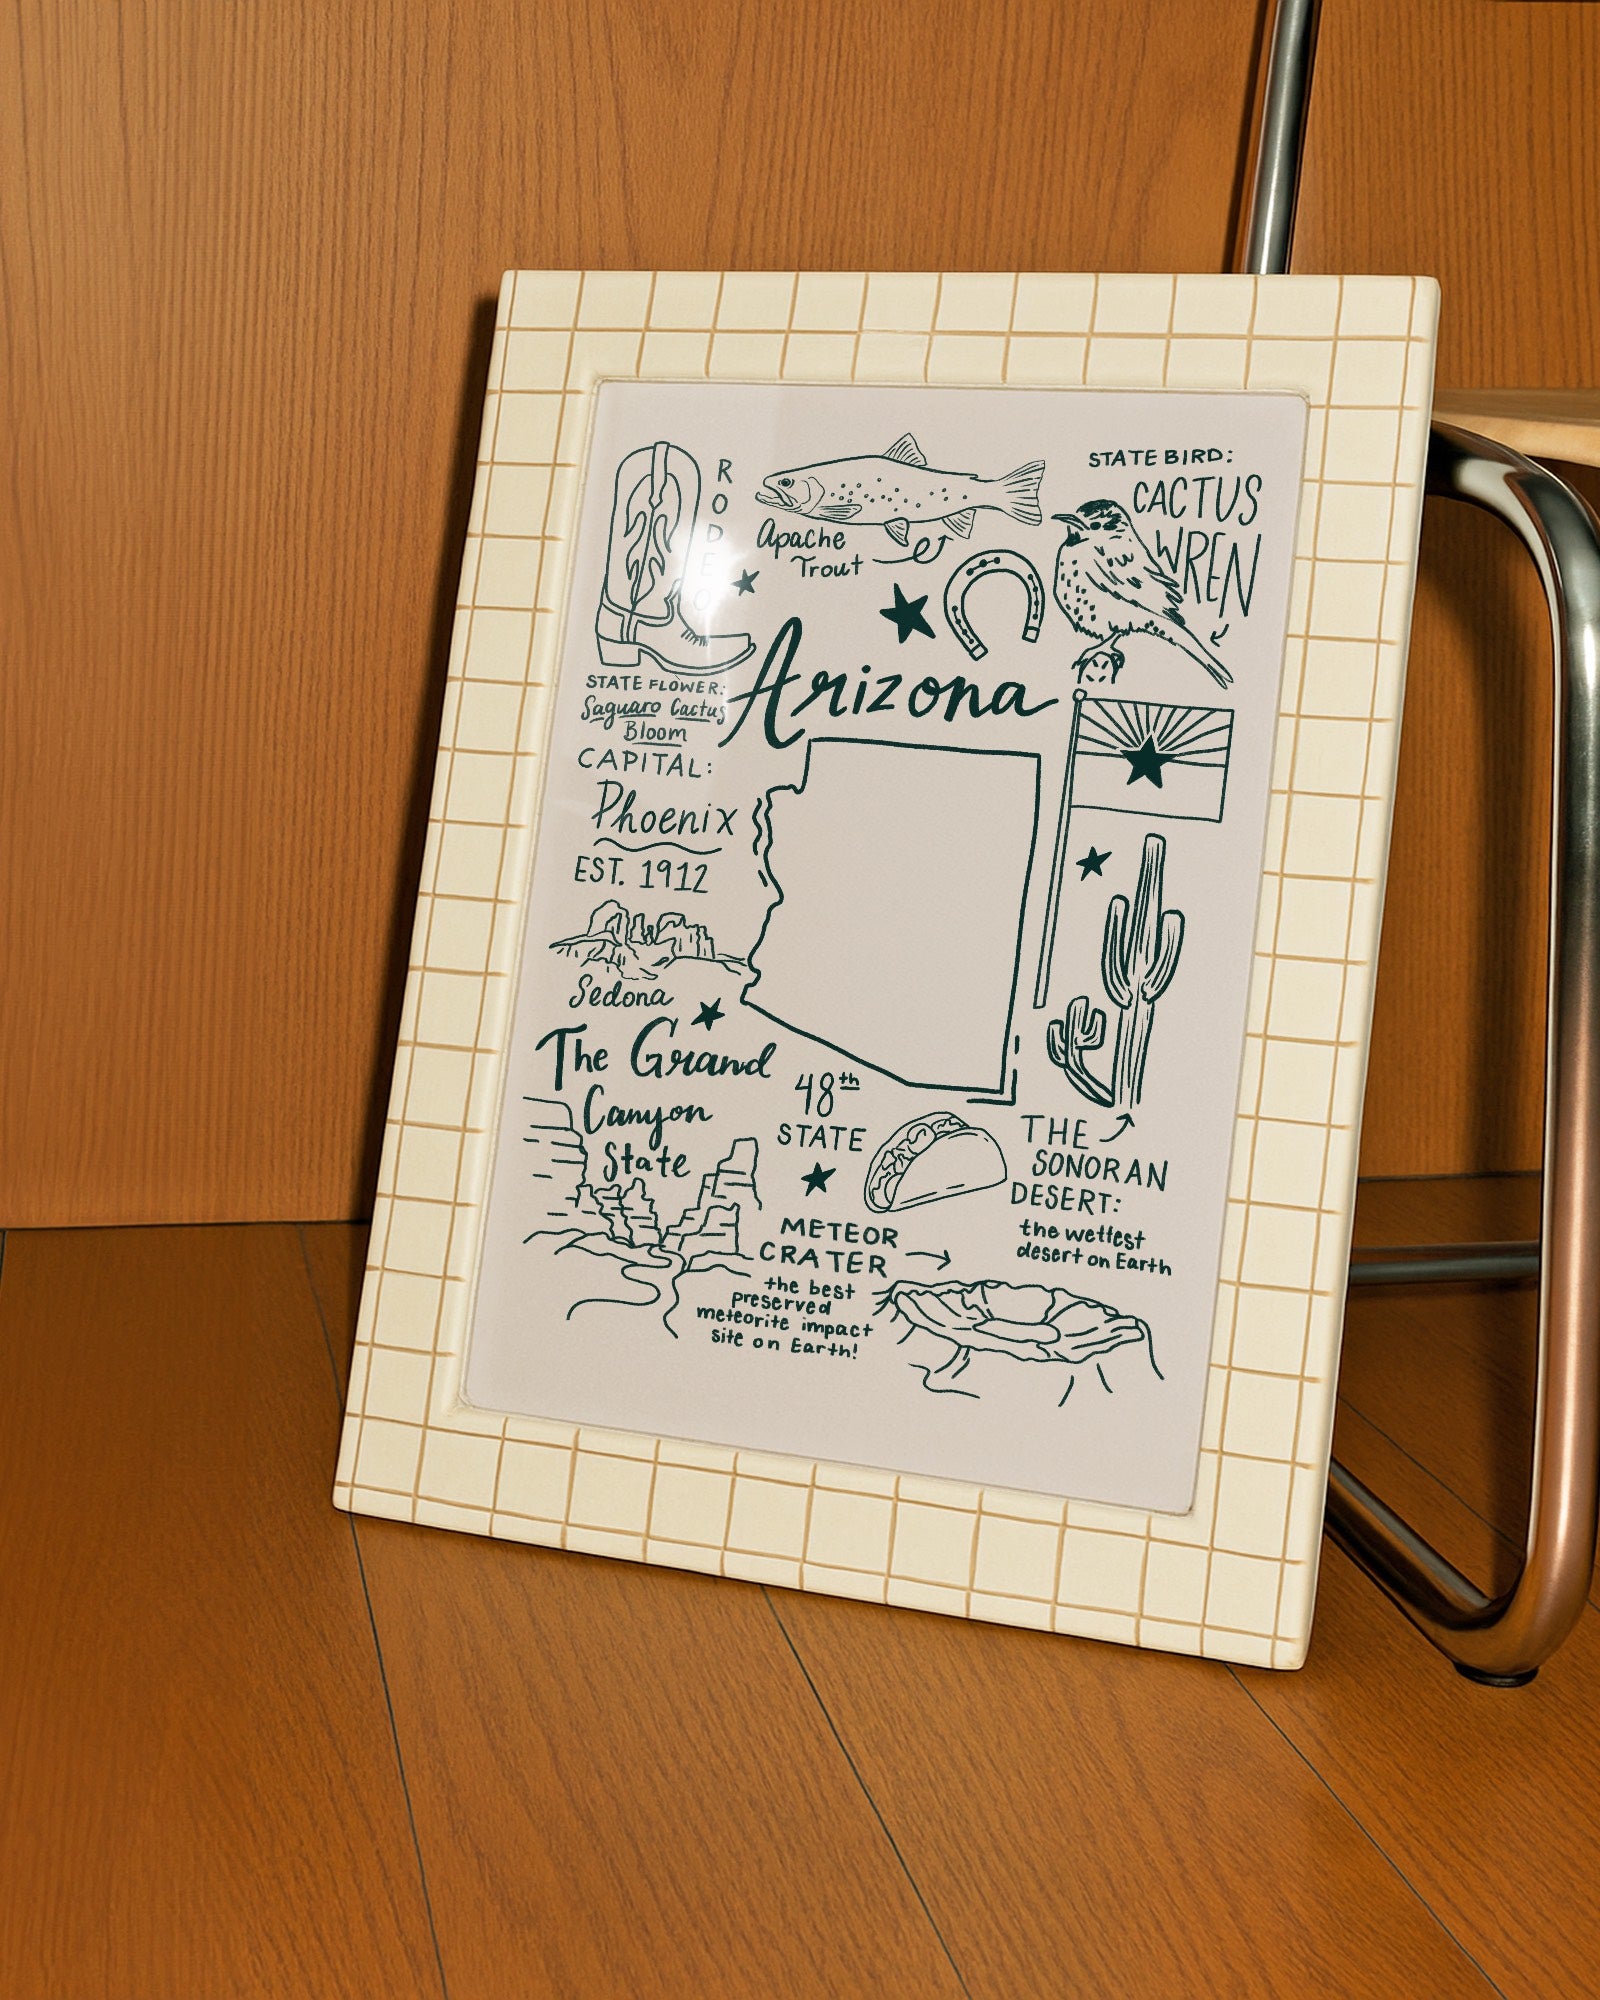 RODEO
Apache
Trout
STATE BIRD:
CACTUS
WREN
Arizona
STATE FLOWER:
Saguaro Cactus
Bloom
CAPITAL:
Phoenix
EST. 1912
Sedona
The Grand
Canyon
State
48th
STATE
THE
SONORAN
DESERT:
the wettest
desert on Earth
METEOR
CRATER
the best
preserved
meteorite impact
site on Earth!